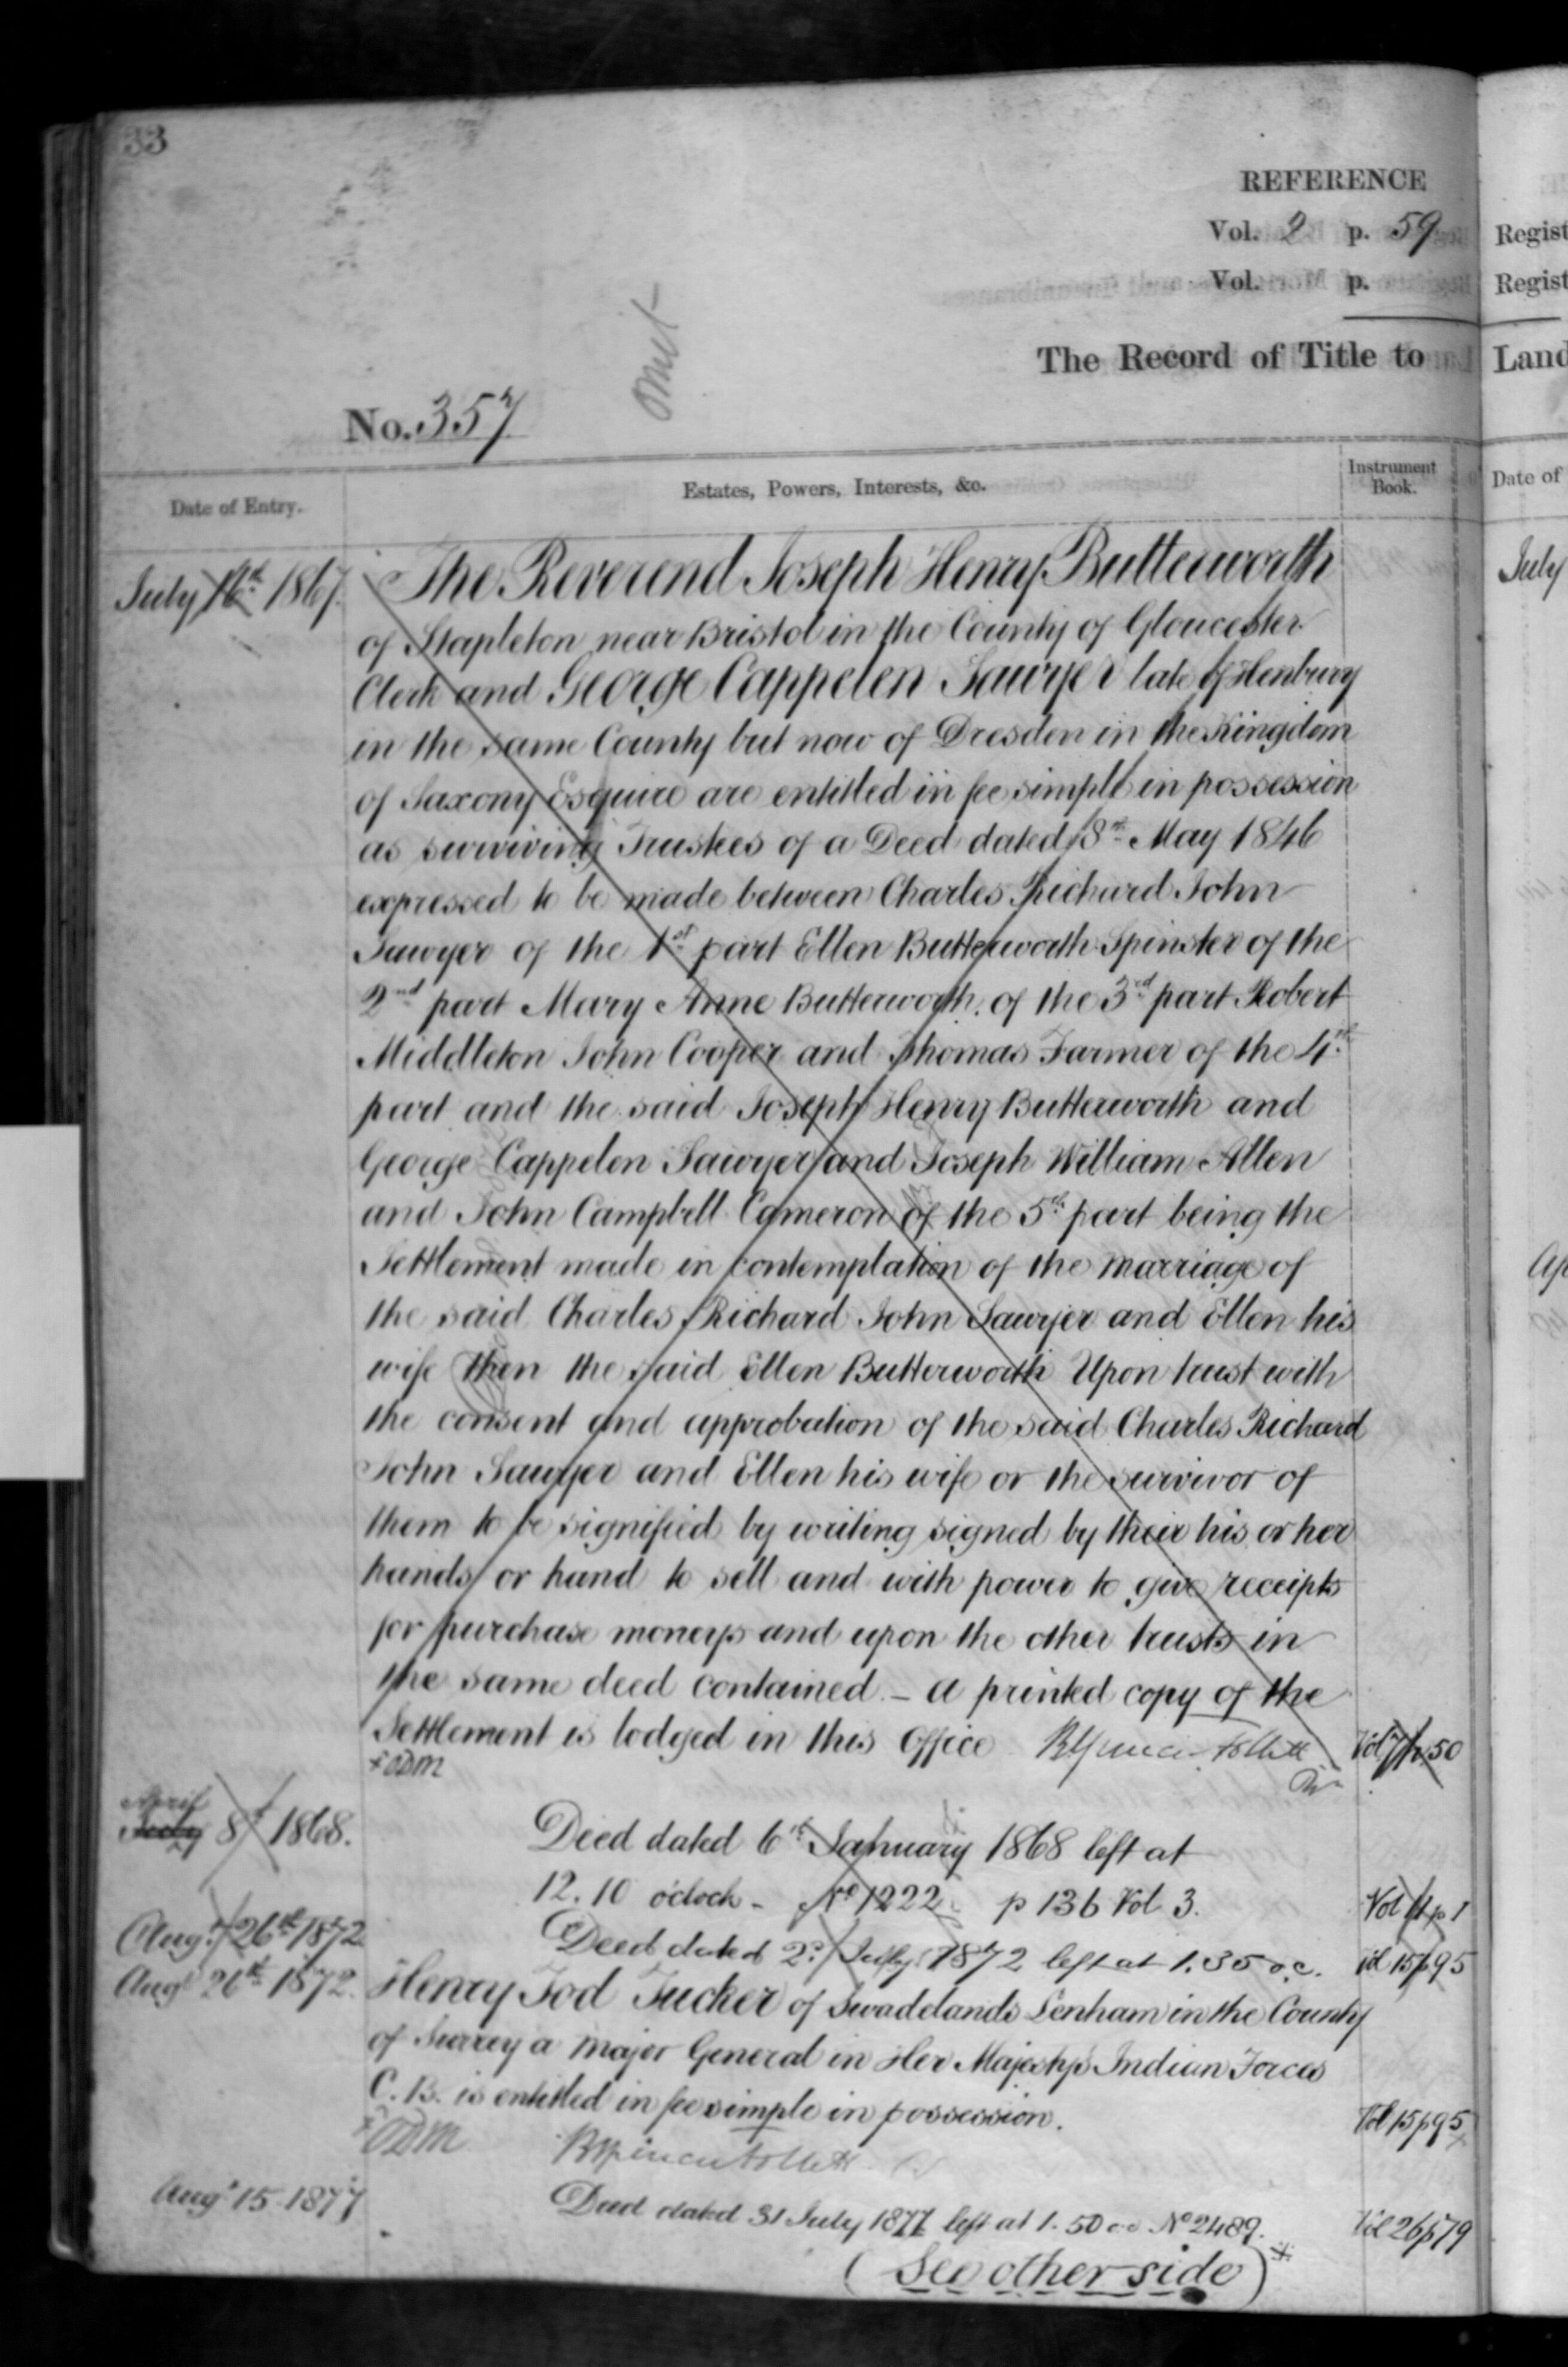 33
REFERENCE
Vol. 2 p. 59
Vol. p.
The Record of Title to
omit
No. 357
Date of Entry.
Estates, Powers, Interests, &c.
Instrument Book.
July 16th 1867.
The Reverend Joseph Henry Butterworth
of Stapleton near Bristol in the County of Gloucester
Clerk and George Cappelen Sawyer late of Henbury
in the same County but now of Dresden in the Kingdom
of Saxony Esquire are entitled in fee simple in possession
as surviving Trustees of a Deed dated 8th May 1846
expressed to be made between Charles Richard John
Sawyer of the 1st part Ellen Butterworth Spinster of the
2nd part Mary Anne Butterworth of the 3rd part Robert
Middleton John Cooper and Thomas Farmer of the 4th
part and the said Joseph Henry Butterworth and
George Cappelen Sawyer and Joseph William Allen
and John Campbell Cameron of the 5th part being the
Settlement made in contemplation of the marriage of
the said Charles Richard John Sawyer and Ellen his
wife then the said Ellen Butterworth Upon trust with
the consent and approbation of the said Charles Richard
John Sawyer and Ellen his wife or the survivor of
them to be signified by writing signed by their his or her
hands or hand to sell and with power to give receipts
for purchase moneys and upon the other trusts in
the same deed contained – a printed copy of the
Settlement is lodged in this Office
p 50
April
July 8th 1868.
Deed dated 6th January 1868 left at
12.10 o'clock - No 1222 p 136 Vol 3.
Vol 11 p 1
Augt 26th 1872
Deed dated 2nd July 1872 left at 1.35 o.c.
15 p 95
Augt 26th 1872.
Henry Tod Tucker of Swadelands Lenham in the County
of Surrey a Major General in Her Majesty's Indian Forces
C.B. is entitled in fee simple in possession.
Vol 15 p 95
Augt 15 1877
Deed dated 31 July 1877 left at 1.50 o.c No 2489.
Vol 26 p 79
(See other side)
Regist
Regist
Land
Date of
July